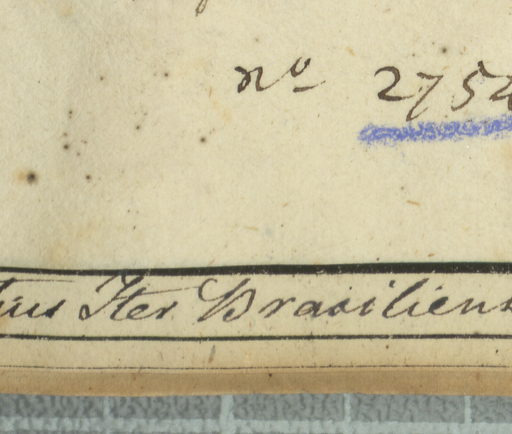 nº 2754
Iter Brasiliens